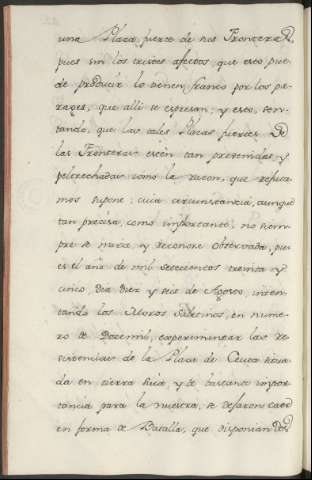 una Plaza fuerte de sus Fronteras,
pues sin los tristes afectos, que esto pue-
de producir lo tienen franco por los pa-
rages, que alli se expresan; y esto, sen-
tando, que las tales Plazas fuertes De
las Fronteras estèn tan prevenidas, y
peltrechadas como la razon, que refuta-
mos supone; cuia circunstancia, aunque
tan precisa, como importante, no siem-
pre se mira, y reconoce observada, pues
es el año de mil setecientos treinta y
cinco, dia diez y seis de Agosto, inten-
tando los Moros en nume-
ro de Docemil, experimentar las re-
sistencias de la Plaza de Ceuta situa-
da en tierra suia, y de bastante impor-
tancia para la nuestra, se dejaron caer
en forma de Batalla, que disponian Dos